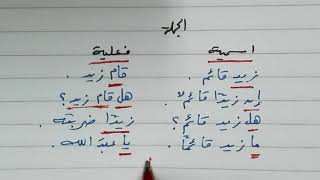 الجملة
اسمية فعلية
زيد قائم. قام زيد.
إن زيدًا قائم. هل قام زيد؟
هل زيد قائم؟ زيدًا ضربته
ما زيد قائمًا. يا عبد الله.